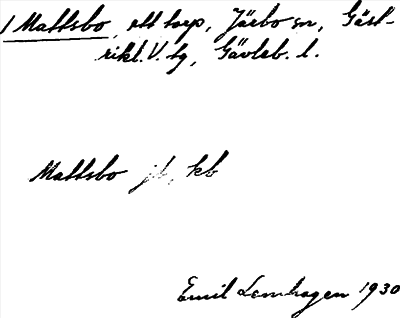 1 Mattsbo, ett torp, Järbo sn, Gäst-
rikl. V. tg, Gävleb. l.
Mattsbo jb, kb
Emil Lemhagen 1930